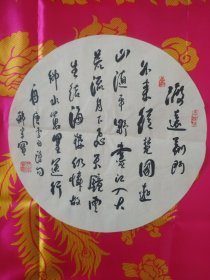 渡远荆门
外来从楚国游
山随平野尽江入大
荒流月下飞天镜云
生结海楼仍怜故
乡水万里送行
舟唐李白诗句